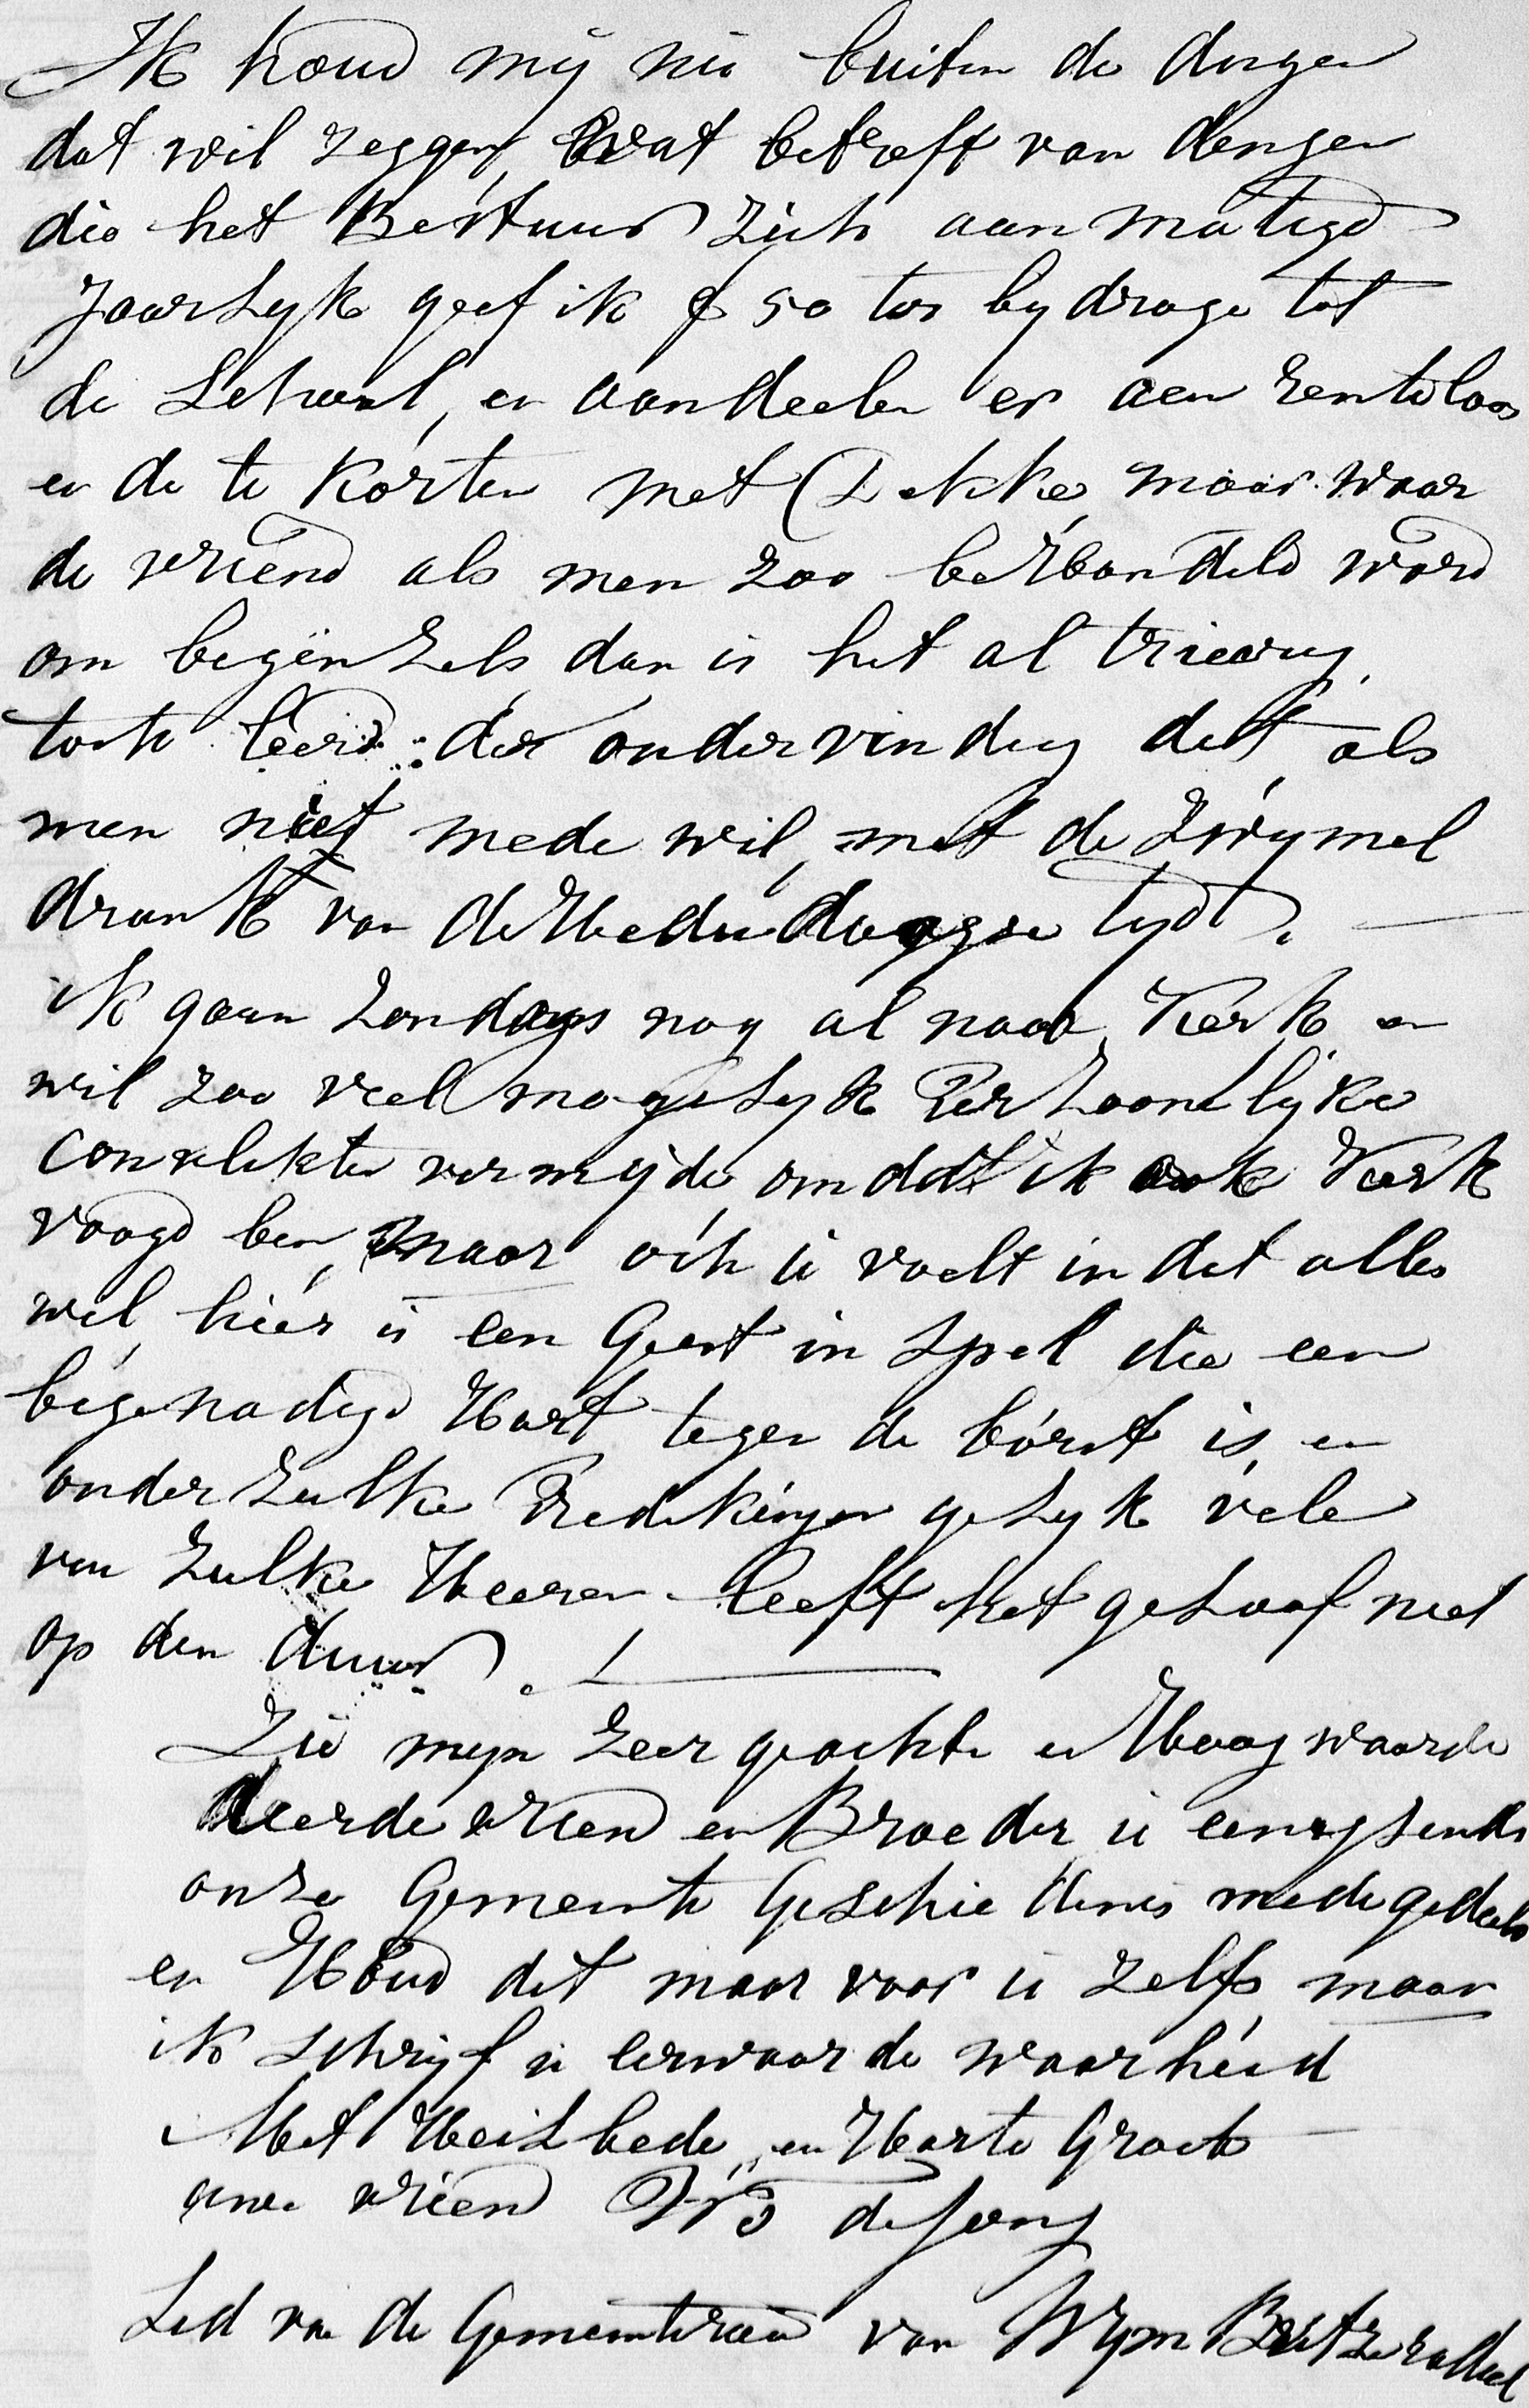 Ik houd mij nu buiten de dingen
dat wil zeggen, wat betreft van dingen
die het Bestuur zich aan matigd
Jaarlyk geef ik f 50 tot bydrage tot
de School, en aandeelen er aen renteloos
en de te korten met Dekke, maar waar
de vriend als men zoo behandeld word
om beginzels dan is het al trieurig,
toch leerd de ondervinding dat, als
men niet mede wil, met de Zwymel
drank van de Hedendaagse tyd.
ik gaan Zondags nog al naar Kerk en
wil zoo veel mogelyk Perzoonelijke
convlikten vermijde, omdat ik ook Kerk
voogd ben, maar och ú voelt in dit alles
wel, hier is een Geest in spel die een
begenadigd Hart tegen de borst is, en
onder zulke Predikingen gelyk vele
van zulke Heeren leeft het geloof niet
op den duur.
Zie myn zeer geachte en Hoog waarde
deerde vriend en Broeder ú eenigsends
onze Gemeente Geschiedenis medegedeeld
en Houd dit maar voor ú zelfs maar
ik schrijf ú eerwaarde waarheid
Met Heilbede, en Harte Groet
uwe vriend de Jong
Lid van de Gemeenteraad van Wymbritzeradeel